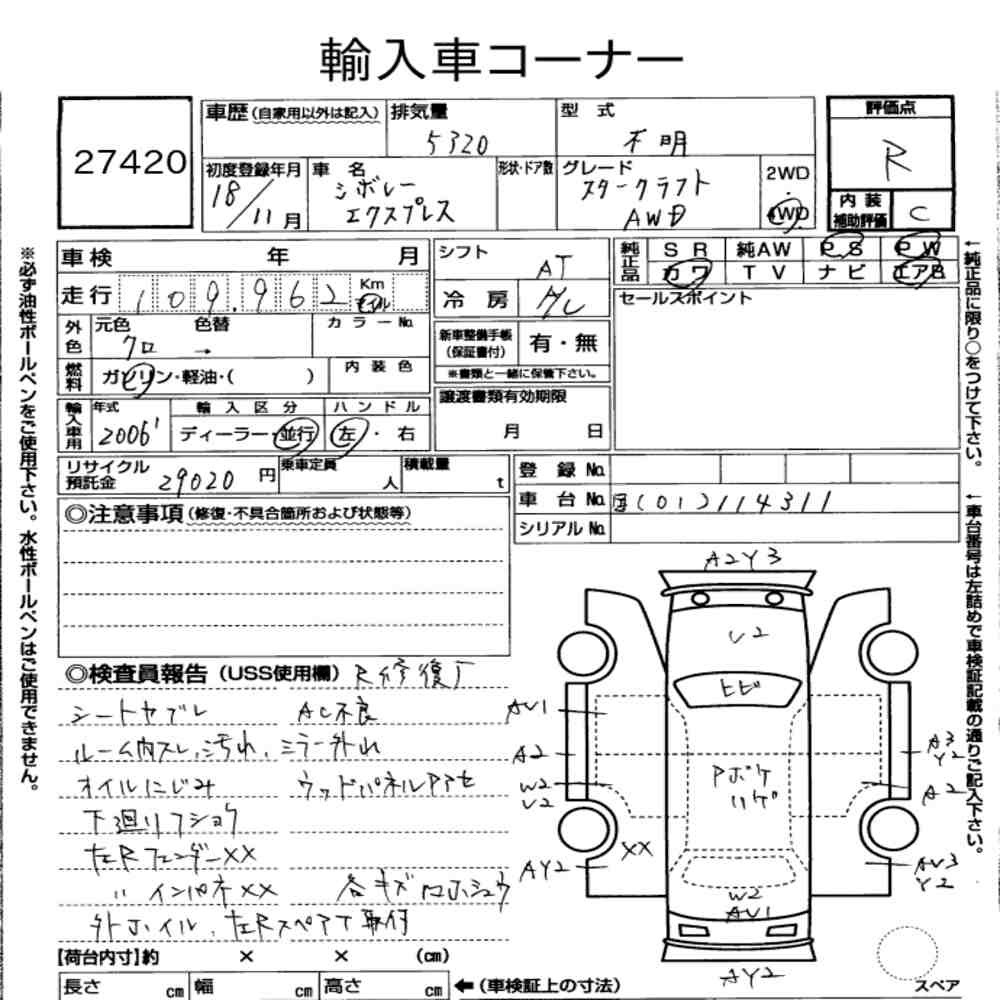 輸入車コーナー
27420
車歴 (自家用以外は記入)
排気量
5320
型 式
不明
評価点
R
初度登録年月
18/11月
車 名
シボレー
エクスプレス
形状・ドア数
グレード
スタークラフト
AWD
2WD
・
4WD
内 装
補助評価
C
※必ず油性ボールペンをご使用下さい。水性ボールペンはご使用できません。
車検 年 月
走行 109,962 Km マイル
外色
元色 色替
クロ →
カラーNo.
燃料
ガソリン・軽油・( )
内 装 色
輸入車用
年式
2006'
輸 入 区 分
ディーラー・並行
ハ ン ド ル
左・右
リサイクル
預託金
29020 円
乗車定員
人
積載量
t
シフト
AT
冷 房
A/C
新車整備手帳
(保証書付)
有・無
※書類と一緒に保管下さい。
譲渡書類有効期限
月 日
純正品
SR 純AW PS PW
カワ TV ナビ エアB
セールスポイント
←純正品に限り○をつけて下さい。
登 録 No.
車 台 No. 国(01)2114311
シリアル No.
←車台番号は左詰めで車検証記載の通りご記入下さい。
◎注意事項 (修復・不具合箇所および状態等)
◎検査員報告 (USS使用欄) R修復歴
シートヤブレ AC不良
ルーム内スレ、汚れ、ミラー外れ
オイルにじみ ウッドパネルPPセ
下廻りフショク
左Rフェンダーxx
〃 インパネxx 各キズ
外
左RスペアT取付
A2Y3
V2
ヒビ
AV1
A2
W2
V2
AY2
XX
Pボケ
ハゲ
A3
Y2
A2
AV3
Y2
W2
AV1
AY2
スペア
【荷台内寸】約 × × (cm)
長さ cm 幅 cm 高さ cm ←(車検証上の寸法)